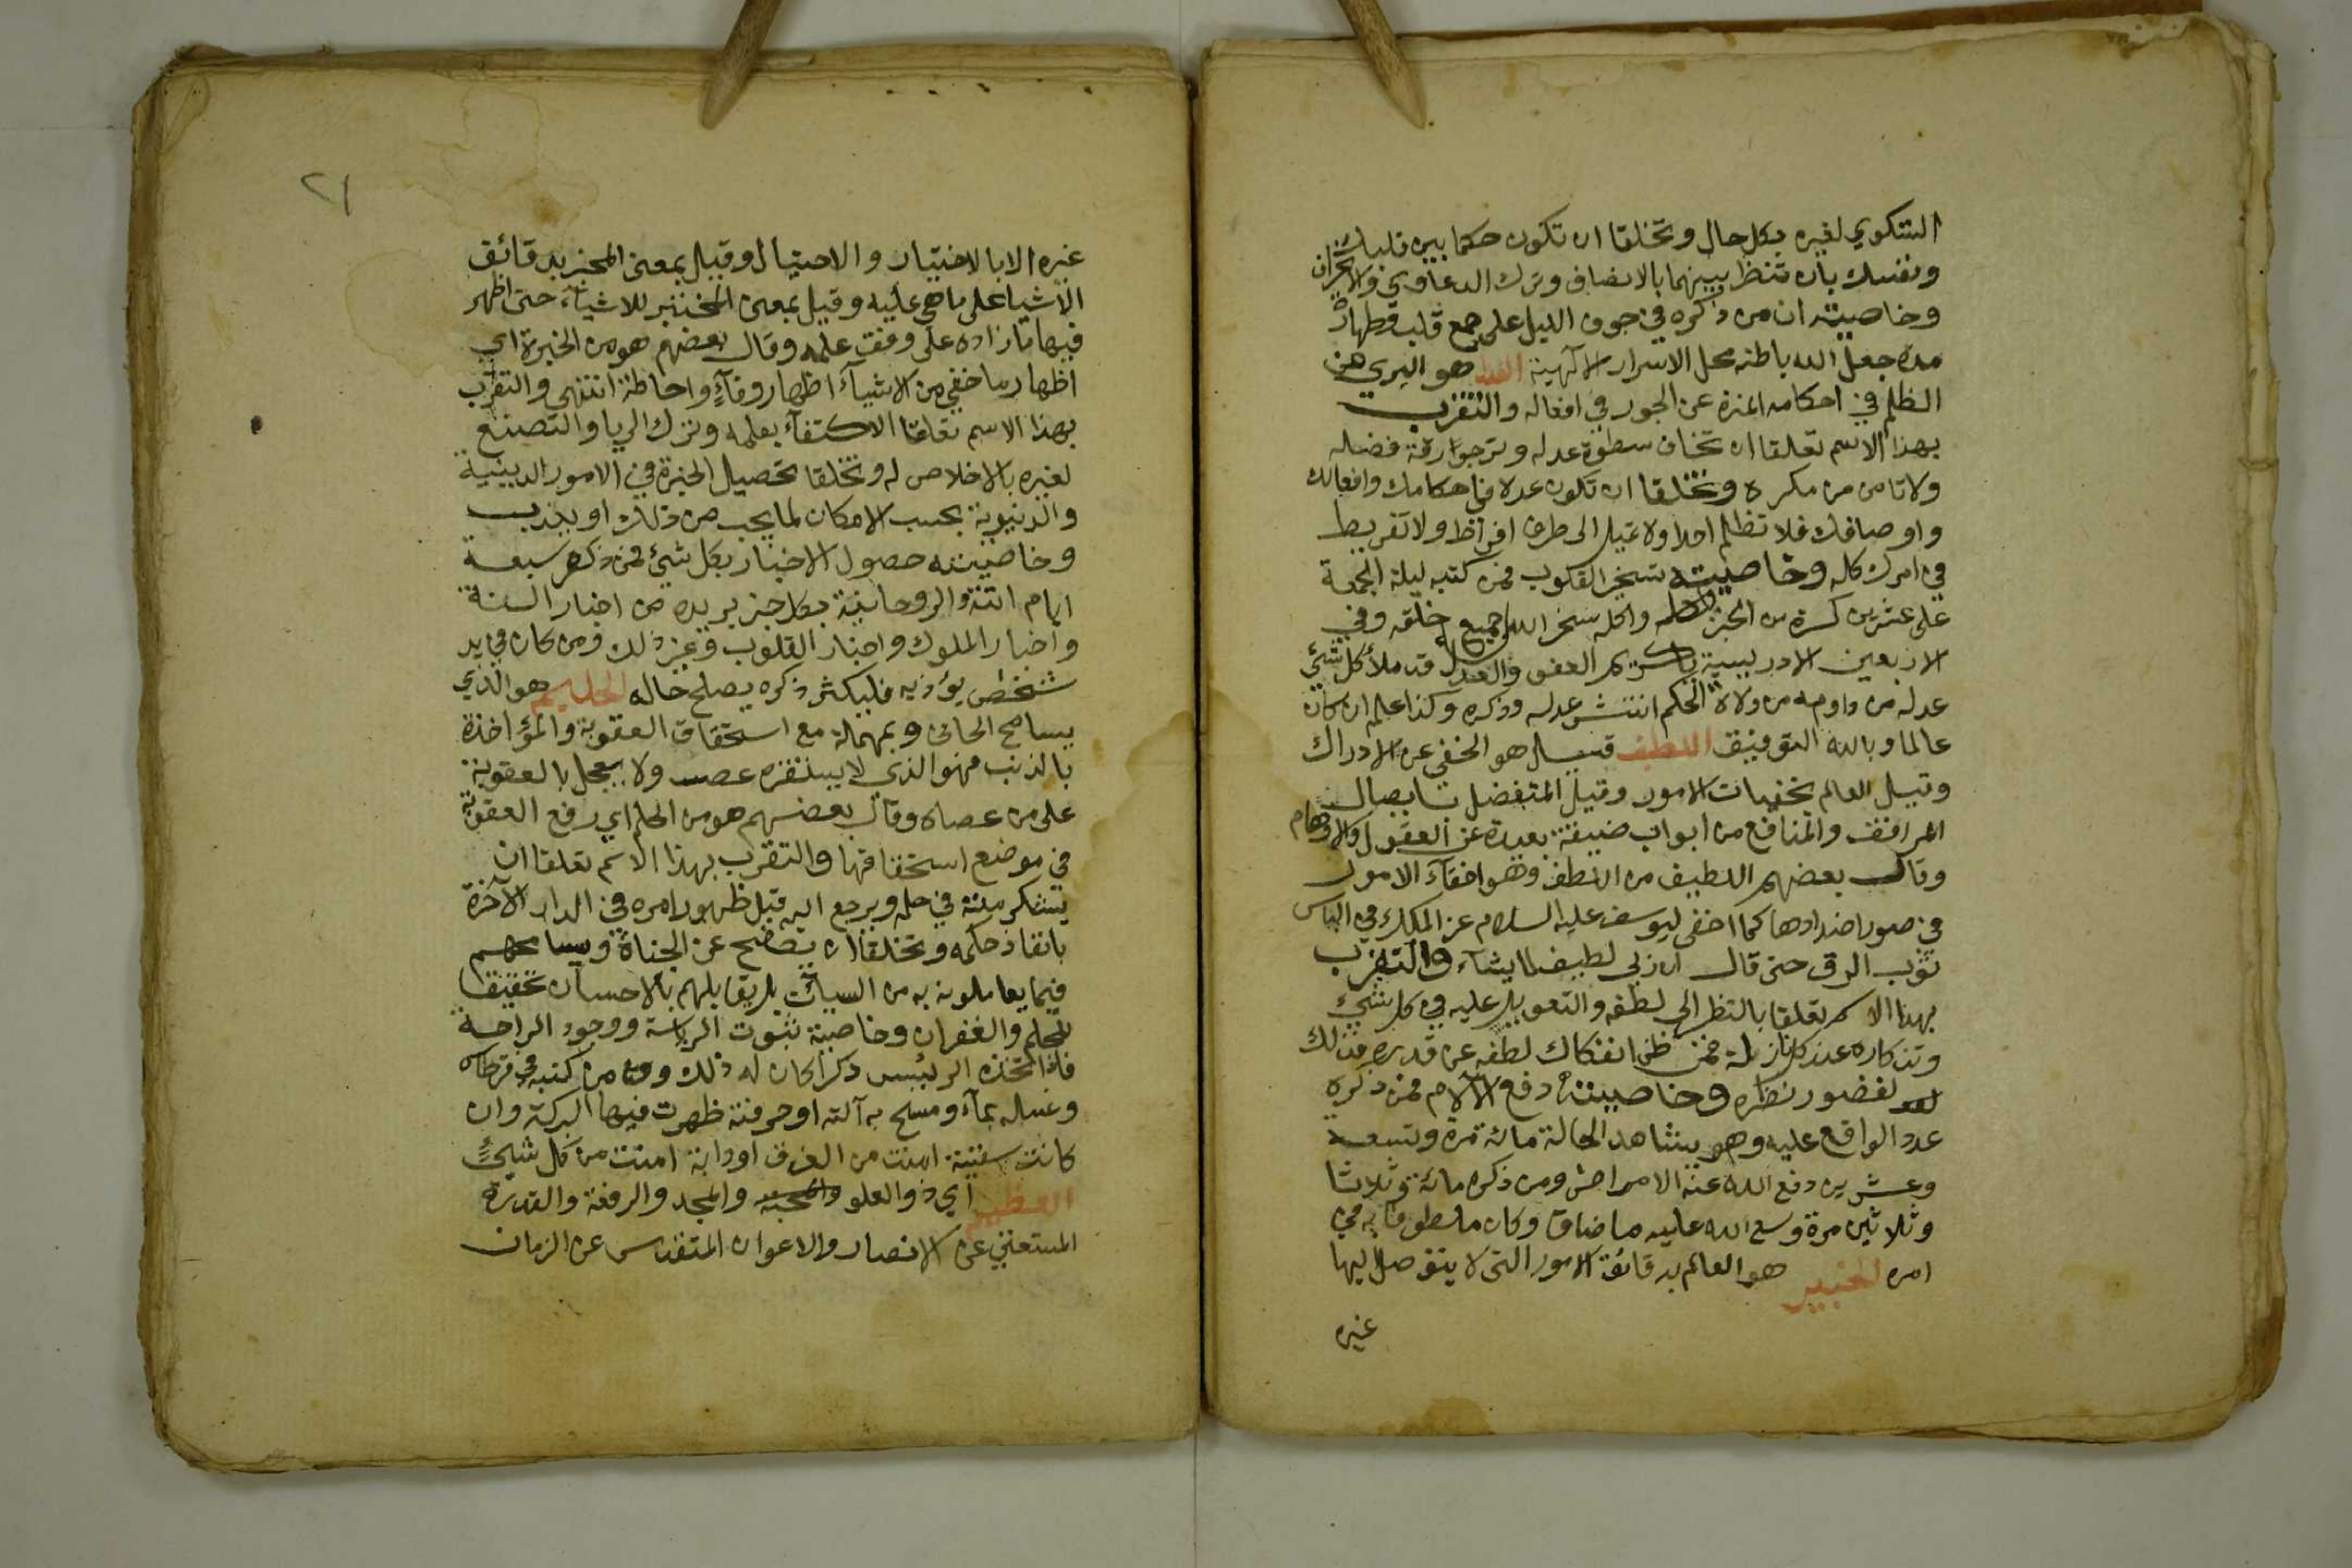 الشكوي لغيره بكل حال وتخلقا ان تكون حكما بين قلبك
ونفسك بان تنظر بينهما بالانصاف وترك الدعاوي والانحراف
وخاصيته ان من ذكره في جوف الليل على جمع قلب وطهارة
مدة جعل الله باطنه محل الاسرار الالهية العدل هو البري من
الظلم في احكامه المنزه عن الجور في افعاله والتقرب
بهذا الاسم تعلقا ان تخاف سطوة عدله وترجوا رقة فضله
ولا تامن من مكره وتخلقا ان تكون عدلا في احكامك وافعالك
واوصافك فلا تظلم احدا ولا تميل الى طرف افراط ولا تفريط
في امرك كله وخاصيته تسخير القلوب فمن كتبه ليلة الجمعة
على عشرين كسرة من الخبز واكله سخر الله له جميع خلقه وفي
الاربعين الادريسية يا كريم العفو والعدل قد ملأ كل شئ
عدله من داومه من ولاة الحكم انتشر عدله وذكره وكذا عالم ان كان
عالما وبالله التوفيق اللطيف قيل هو الخفي عن الادراك
وقيل العالم بخفيات الامور وقيل المتفضل بايصال
المرافق والمنافع من ابواب ضيقة بعيدة عن العقول والاوهام
وقال بعضهم اللطيف من اللطف وهو اخفآء الامور
في صور اضدادها كما اخفى ليوسف عليه السلام عز الملك في الباس
ثوب الرق حتى قال ان ربي لطيف لما يشآء والتقرب
بهذا الاسم تعلقا بالنظر الى لطفه والتعويل عليه في كل شئ
وتذكاره عند كل نازلة فمن ظن انفكاك لطفه عن قدره فذلك
لقصور نظره وخاصيته دفع الآلام فمن ذكره
عدد الواقع عليه وهو يشاهد الحالة مائة مرة وتسعة
وعشرين دفع الله عنه الامراض ومن ذكره مائة وثلاثا
وثلاثين مرة وسع الله عليه ما ضاق وكان ملطوفا به في
امره الخبير هو العالم بدقائق الامور التي لا يتوصل اليها
غيره
٢١
غيره الا بالاختبار والاحتيال وقيل بمعنى المخبر بدقائق
الاشيا على ما هي عليه وقيل بمعنى المختبر للاشيآء حتى اظهر
فيها ما اراده على وفق علمه وقال بعضهم هو من الخبرة اي
اظهار ما خفي من الاشيآء اظهار وفآءٍ واحاطة انتهى والتقرب
بهذا الاسم تعلقا الاكتفآء بعلمه وترك الريا والتصنع
لغيره بالاخلاص له وتخلقا تحصيل الخبرة في الامور الدينية
والدنيوية بحسب الامكان لما يجب من ذلك او يندب
وخاصيته حصول الاخبار بكل شئ فمن ذكره سبعة
ايام اتته الروحانية بكل خبر يريده من اخبار السنة
واخبار الملوك واخبار القلوب وغير ذلك ومن كان في يد
شخص يؤذيه فليكثر ذكره يصلح حاله الحليم هو الذي
يسامح الجاني ويمهله مع استحقاق العقوبة والمؤاخذة
بالذنب فهو الذي لا يستفزه عصـ ولا يعجل بالعقوبة
على من عصاه وقال بعضهم هو من الحلم اي رفع العقوبة
في موضع استحقاقها والتقرب بهذا الاسم تعلقا ان
يشكر منته في حلمه ويرجع اليه قبل ظهور امره في الدار الآخرة
بانفاذ حكمه وتخلقا ان يصفح عن الجناة ويسامحهم
فيما يعاملونه به من السيئات بل يقابلهم بالاحسان تحقيقا
للحلم والغفران وخاصيته ثبوت الرياسة ووجود الراحة
فاذا اتخذه الرئيس ذكرا كان له ذلك ومن كتبه في قرطاس
وغسله بمآء ومسح به آلته او حرفته ظهرت فيها البركة وان
كانت سفينة امنت من الغرق او دابة امنت من كل شئٍ
العظيم اي ذو العلو والمحبة والمجد والرفعة والقدرة
المستغني عن الانصار والاعوان المتقدس عن الزمان